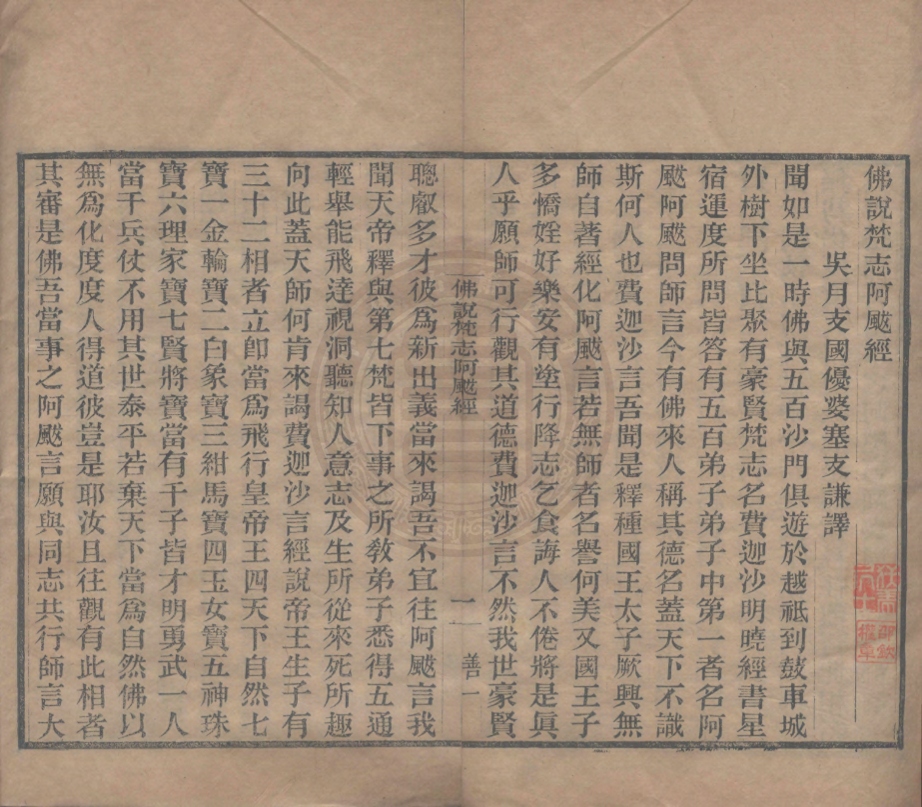 佛說梵志阿颰經
吳月支國優婆塞支謙譯
聞如是一時佛與五百沙門俱遊於越祇到鼓車城
外樹下坐比聚有豪賢梵志名費迦沙明曉經書星
宿運度所問皆答有五百弟子弟子中第一者名阿
颰阿颰問師言今有佛來人稱其德名蓋天下不識
斯何人也費迦沙言吾聞是釋種國王太子厥興無
師自著經化阿颰言若無師者名譽何美又國王子
多憍婬好樂安有塗行降志乞食誨人不倦將是眞
人乎願師可行觀其道德費迦沙言不然我世豪賢
佛說梵志阿颰經
一
善一
聰叡多才彼爲新出義當來謁吾不宜往阿颰言我
聞天帝釋與第七梵皆下事之所敎弟子悉得五通
輕舉能飛達視洞聽知人意志及生所從來死所趣
向此蓋天師何肯來謁費迦沙言經說帝王生子有
三十二相者立卽當爲飛行皇帝王四天下自然七
寶一金輪寶二白象寶三紺馬寶四玉女寶五神珠
寶六理家寶七賢將寶當有千子皆才明勇武一人
當千兵仗不用其世泰平若棄天下當爲自然佛以
無爲化度度人得道彼豈是耶汝且往觀有此相者
其審是佛吾當事之阿颰言願與同志共行師言大